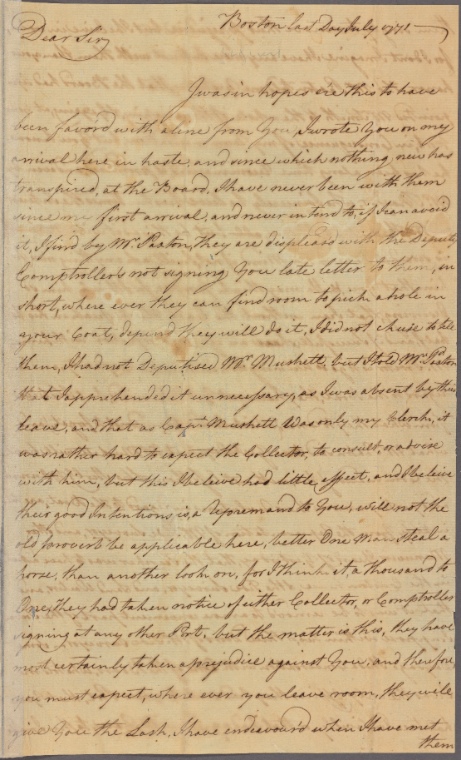 Boston last Day July 1771
Dear Sir
I was in hopes ere this to have
been favord with a line from You, I wrote You on my
arrival here in haste, and since which nothing new has
transpired, at the Board, I have never been with them
since my first arrival, and never intend to, if I can avoid
it, I find by Mr. Paxton, they are displeasd with the Deputy
Comptroller's not signing You late letter to them, in
short, where ever they can find room to pick a hole in
your Coat, depend they will do it, I did not chuse to tell
them, I had not Deputised Mr. Mushett, but I told Mr. Paxton
that I apprehended it unnecessary, as I was absent by their
leave, and that as Capt. Mushett Was only my Clerk, it
was rather hard to expect the Collector, to consult, or advise
with him, but this I beleive had little effect, and I beleive
their good Intentions is, a Repremand to You, will not the
old proverb be applicable here, better One Man steal a
horse, than another look on, for I think it, a thousand to
One, they had taken notice of either Collector, or Comptroller
signing at any other Port, but the matter is this, they have
most certainly taken a prejudice against You, and therefore
you must expect, where ever you leave room, they will
give You the Lash, I have endeavour'd when I have met
them